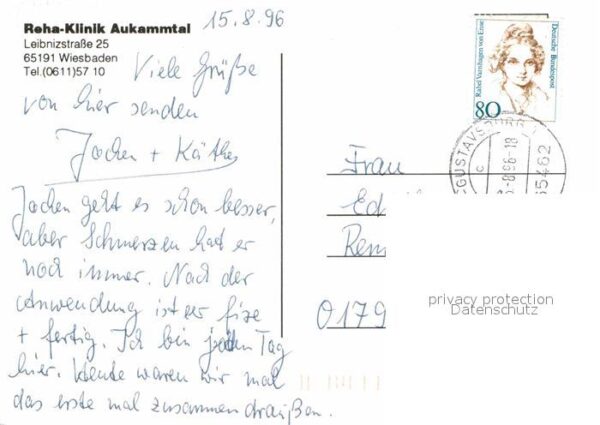 15.8.96
Reha-Klinik Aukammtal
Leibnizstraße 25
65191 Wiesbaden
Tel.(0611)57 10
Viele Grüße
von hier senden
Jochen + Käthe
Jochen geht es schon besser,
aber Schmerzen hat er
noch immer. Nach der
Anwendung ist er fixe
+ fertig. Ich bin jeden Tag
hier. Heute waren wir mal
das erste mal zusammen draußen.
Rahel Varnhagen von Ense
Deutsche Bundespost
80
GUSTAVSBURG
-8.96-18
65462
c
Frau
Ed
Rem
0179
privacy protection
Datenschutz